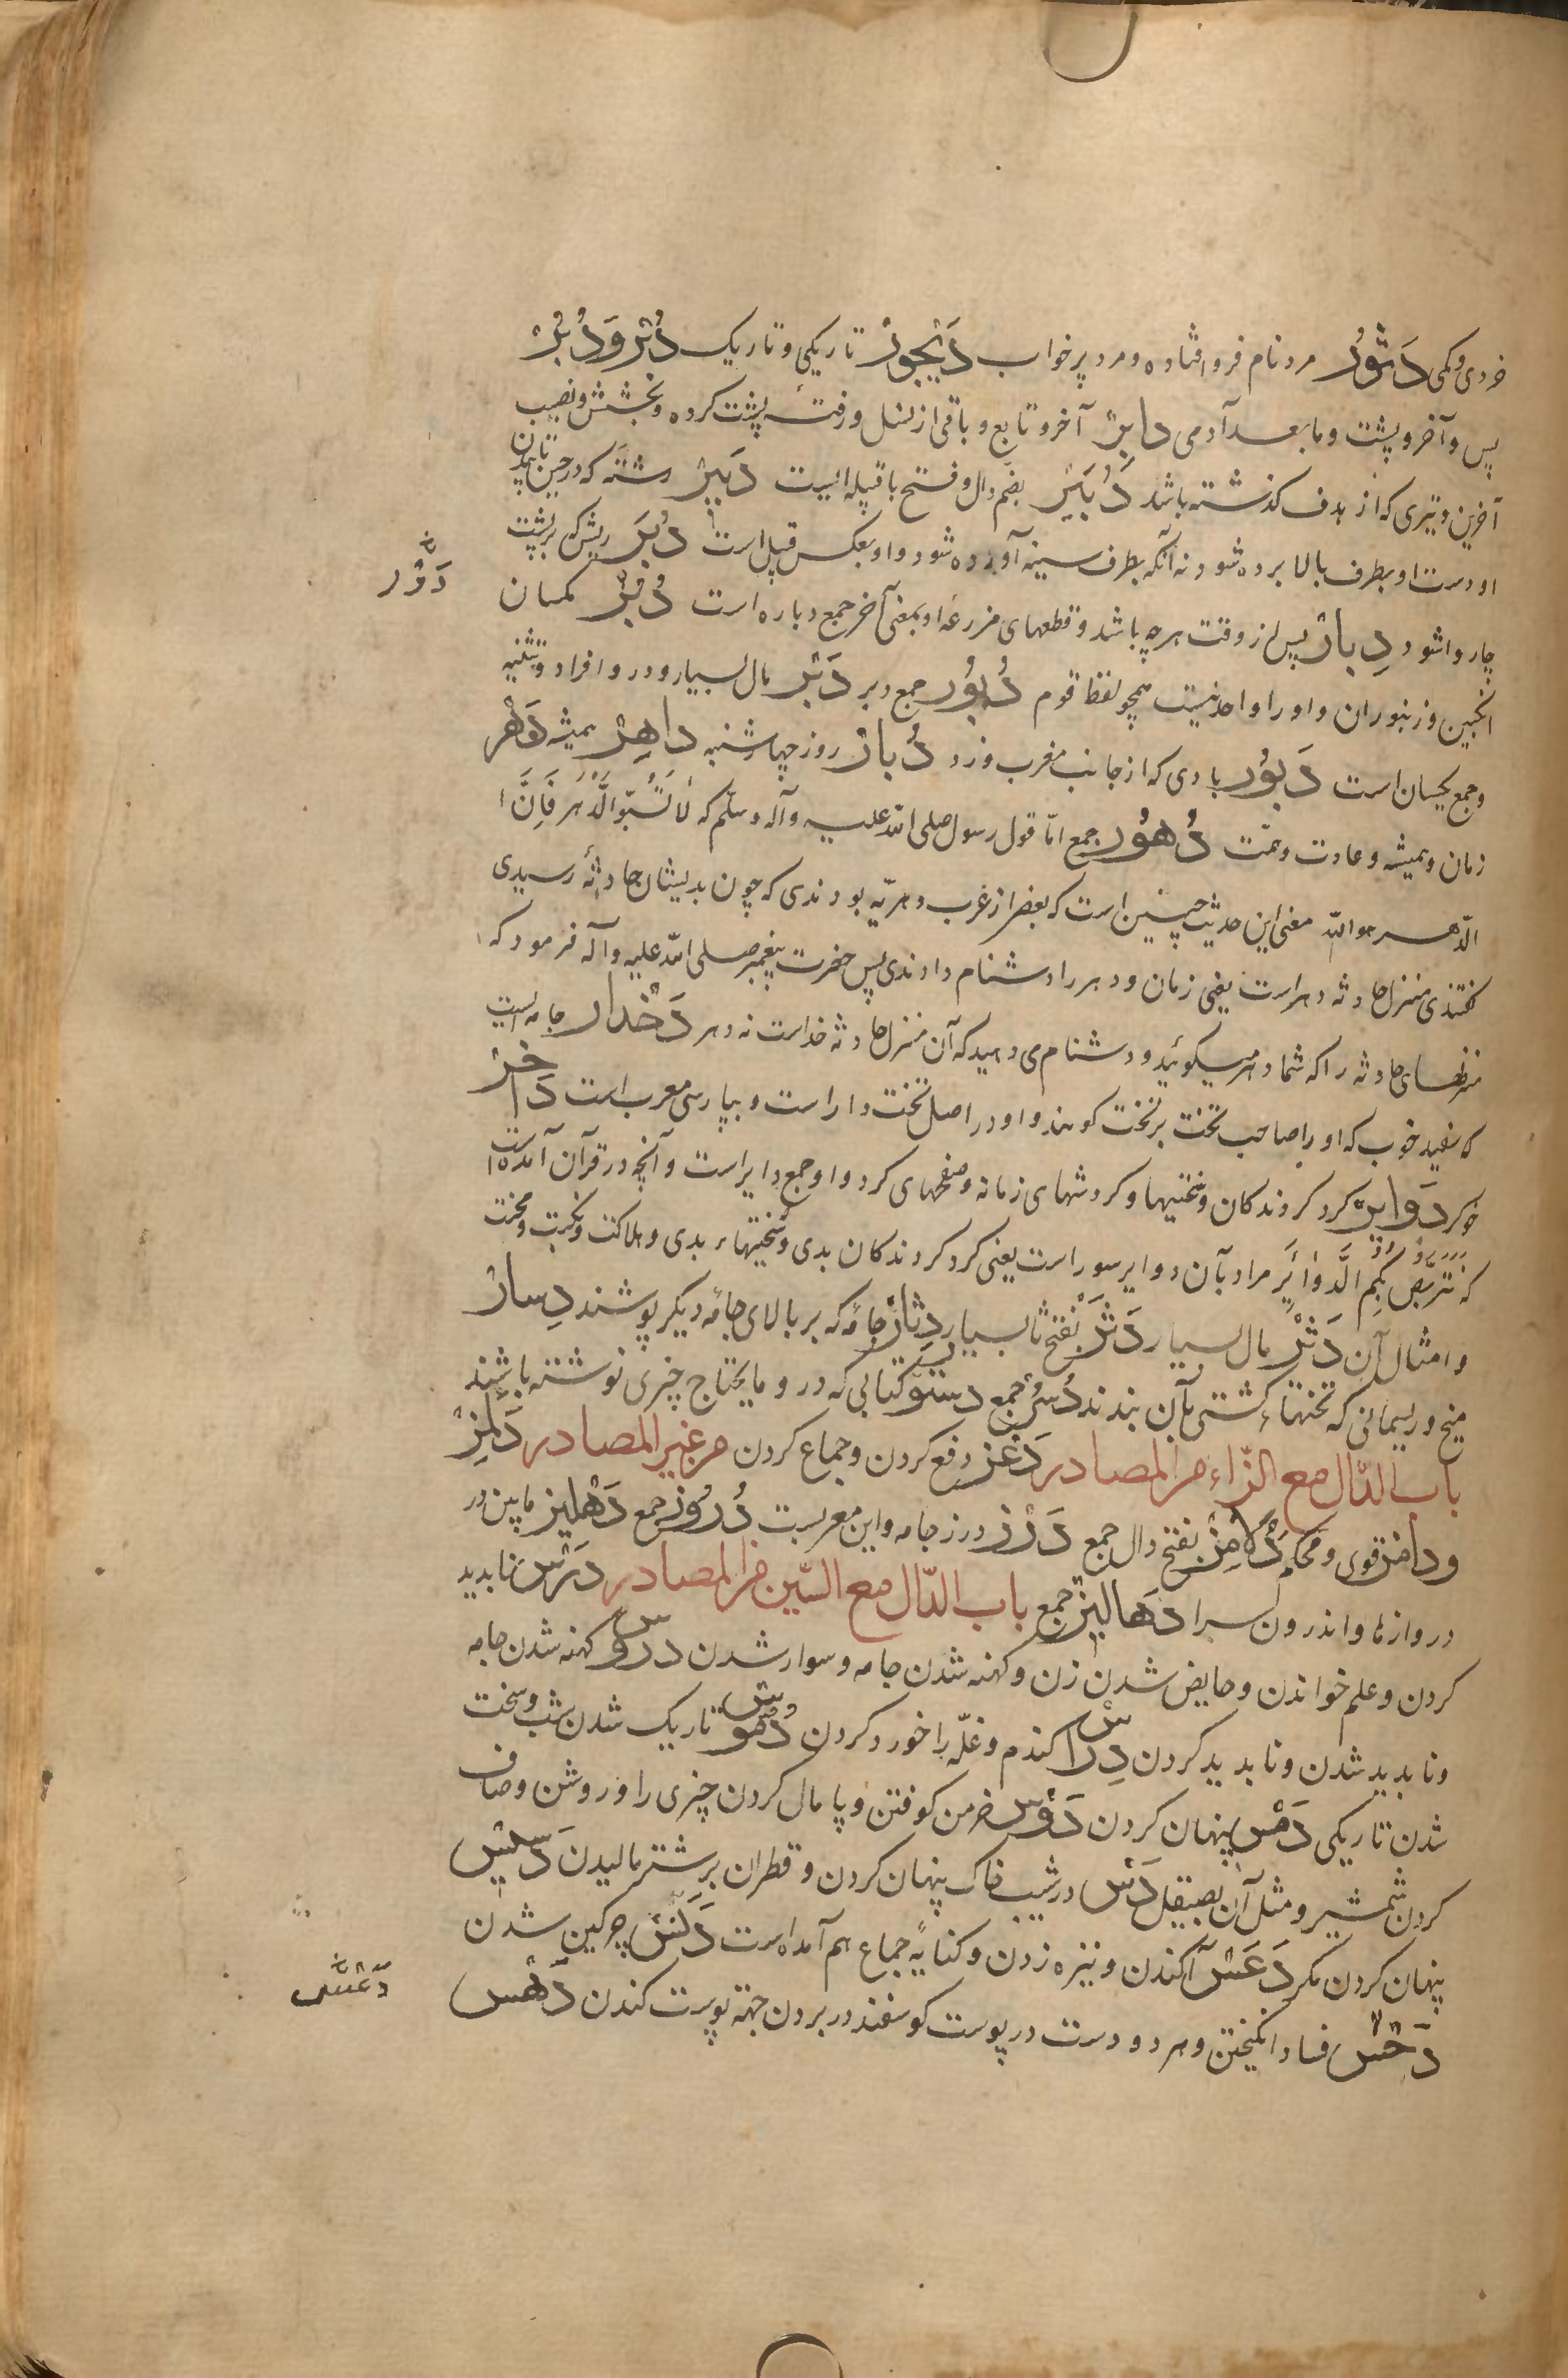 خردی و کمی دَثُور مرد نام فرو افتاده و مرد پر خواب دَیْجُور تاریکی و تاریک دُبْر وَ دُبُر
پس و آخر و پشت و ما بعد آدمی دابِر آخر و تابع و باقی از نسل و رفته پشت کرده و بخشش و نصیب
آخرین و تیری که از هدف گذشته باشد دُبَیْر بضم دال و فتح با قبیله ایست دَبِیْر رشته که در حین تابیدن
او دست او بطرف بالا برده شود نه آنکه بطرف سینه آورده شود و او بعکس قبیل است دَبَر ریش که بر پشت
چاروا شود دِبار پس از وقت هر چه باشد و قطعهای مزرعه او بمعنی آخر جمع دباره است دُبْر مکسان
انجبین و زنبوران و او را واحد نیست همچو لفظ قوم دُبُور جمع دبر دَبْر مال بسیار و درو افراد و تثنیه
و جمع یکسان است دَبُور بادی که از جانب مغرب وزد دُبار روز چهارشنبه داهِر همیشه دَهْر
زمان و همیشه و عادت و همّت دُهُور جمع امّا قول رسول صلی الله علیه و آله و سلّم که لَا تَسُبّوا الدَّهْرَ فَاِنَّ ا
الدّهر هو اللّه معنی این حدیث چنین است که بعضی از عرب دهریّه بودندی که چون بدیشان حادثهٔ رسیدی
گفتندی منزل حادثه دهر است یعنی زمان و دهر را دشنام دادندی پس حضرت پیغمبر صلی اللّه علیه و آله فرمود که
منزلهای حادثه را که شما دهر میگوئید و دشنام می دهید که آن منزل حادثه خداست نه دهر دَخْدار جامه ایست
که سفید خوب که او را صاحب تخت بر تخت کوهند و او در اصل تخت دار است و بپارسی معرب است دَاخِر
خوکر دَوایِر کرد کردندکان و سختیها و کردشهای زمانه و صفحهای کرد و او جمع دایر است و آنچه در قرآن آمده است
که نتربّص بِکُم الدَّوائِر مراد بآن دوایر سور است یعنی کرد کردندکان بدی و سختیهاء بدی و هلاکت و نکبت و محنت
و امثال آن دَثْر مال بسیار دَثَر بفتح ثا بسیار دِثار جامهٔ که بر بالای جامهٔ دیگر پوشند دِسار
میخ و ریسمانی که تختهاء کشتی بآن بندند دُسُر جمع دستور کتابی که درو ما یحتاج چیزی نوشته باشند
باب الدّال مع الزّاء من المصادر دَعْز دفع کردن و جماع کردن من غیر المصادر دُلَمِز
و دلامز قوی و محکم دَلامِز بفتح دال جمع دَرْز درز جامه و این معربست دُرُوز جمع دَهْلیز مابین در
دروازها و اندرون سرا دَهالیز جمع باب الدّال مع السّین من المصادر دَرْس ناپدید
کردن و علم خواندن و حایض شدن زن و کهنه شدن جامه و سوار شدن دروس کهنه شدن جامه
و ناپدید شدن و ناپدید کردن دِراس کندم و غلّه را خورد کردن دُمُوس تاریک شدن شب و سخت
شدن تاریکی دَمْس پنهان کردن دَوْس خرمن کوفتن و پامال کردن چیزی را و روشن و صاف
کردن شمشیر و مثل آن بصیقل دَسّ در شیب خاک پنهان کردن و قطران بر شتر مالیدن دَسِیْس
پنهان کردن مکر دَعْس آکندن و نیزه زدن و کنایهٔ جماع هم آمده است دَنَس چرکین شدن
دَحْس فساد انگیختن و هر دو دست در پوست کوسفند در بردن جهة پوست کندن دَهْس
دَوْر
دَعْس